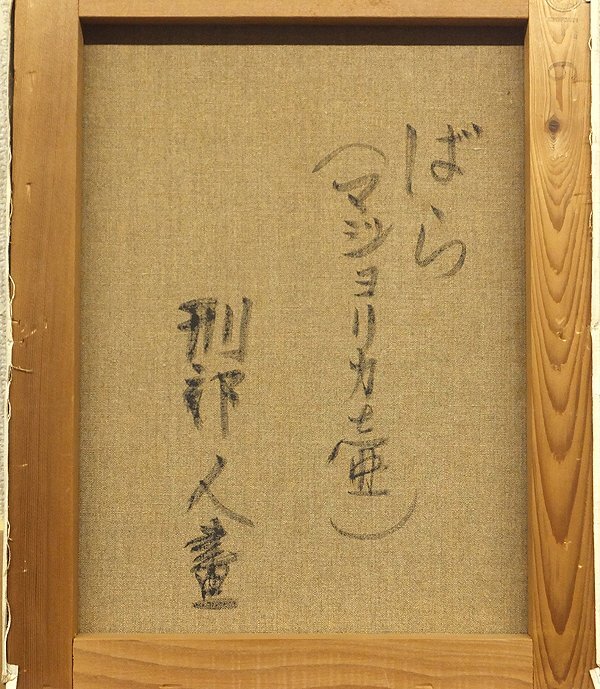 ばら
(マジョリカ壷)
刑部人画